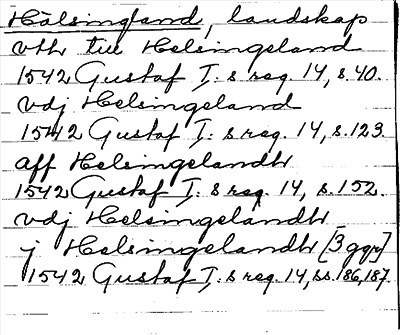 Hälsingland, landskap
vth till Helsingeland
1542 Gustaf I:s reg. 14, s. 40.
vdj Helsingeland
1542 Gustaf I:s reg. 14, s. 123
aff Helsingelandh
1542 Gustaf I:s reg. 14, s. 152.
vdj Helsingelandh
j Helsingelandh [3 ggr]
1542 Gustaf I:s reg. 14, ss. 186, 187.